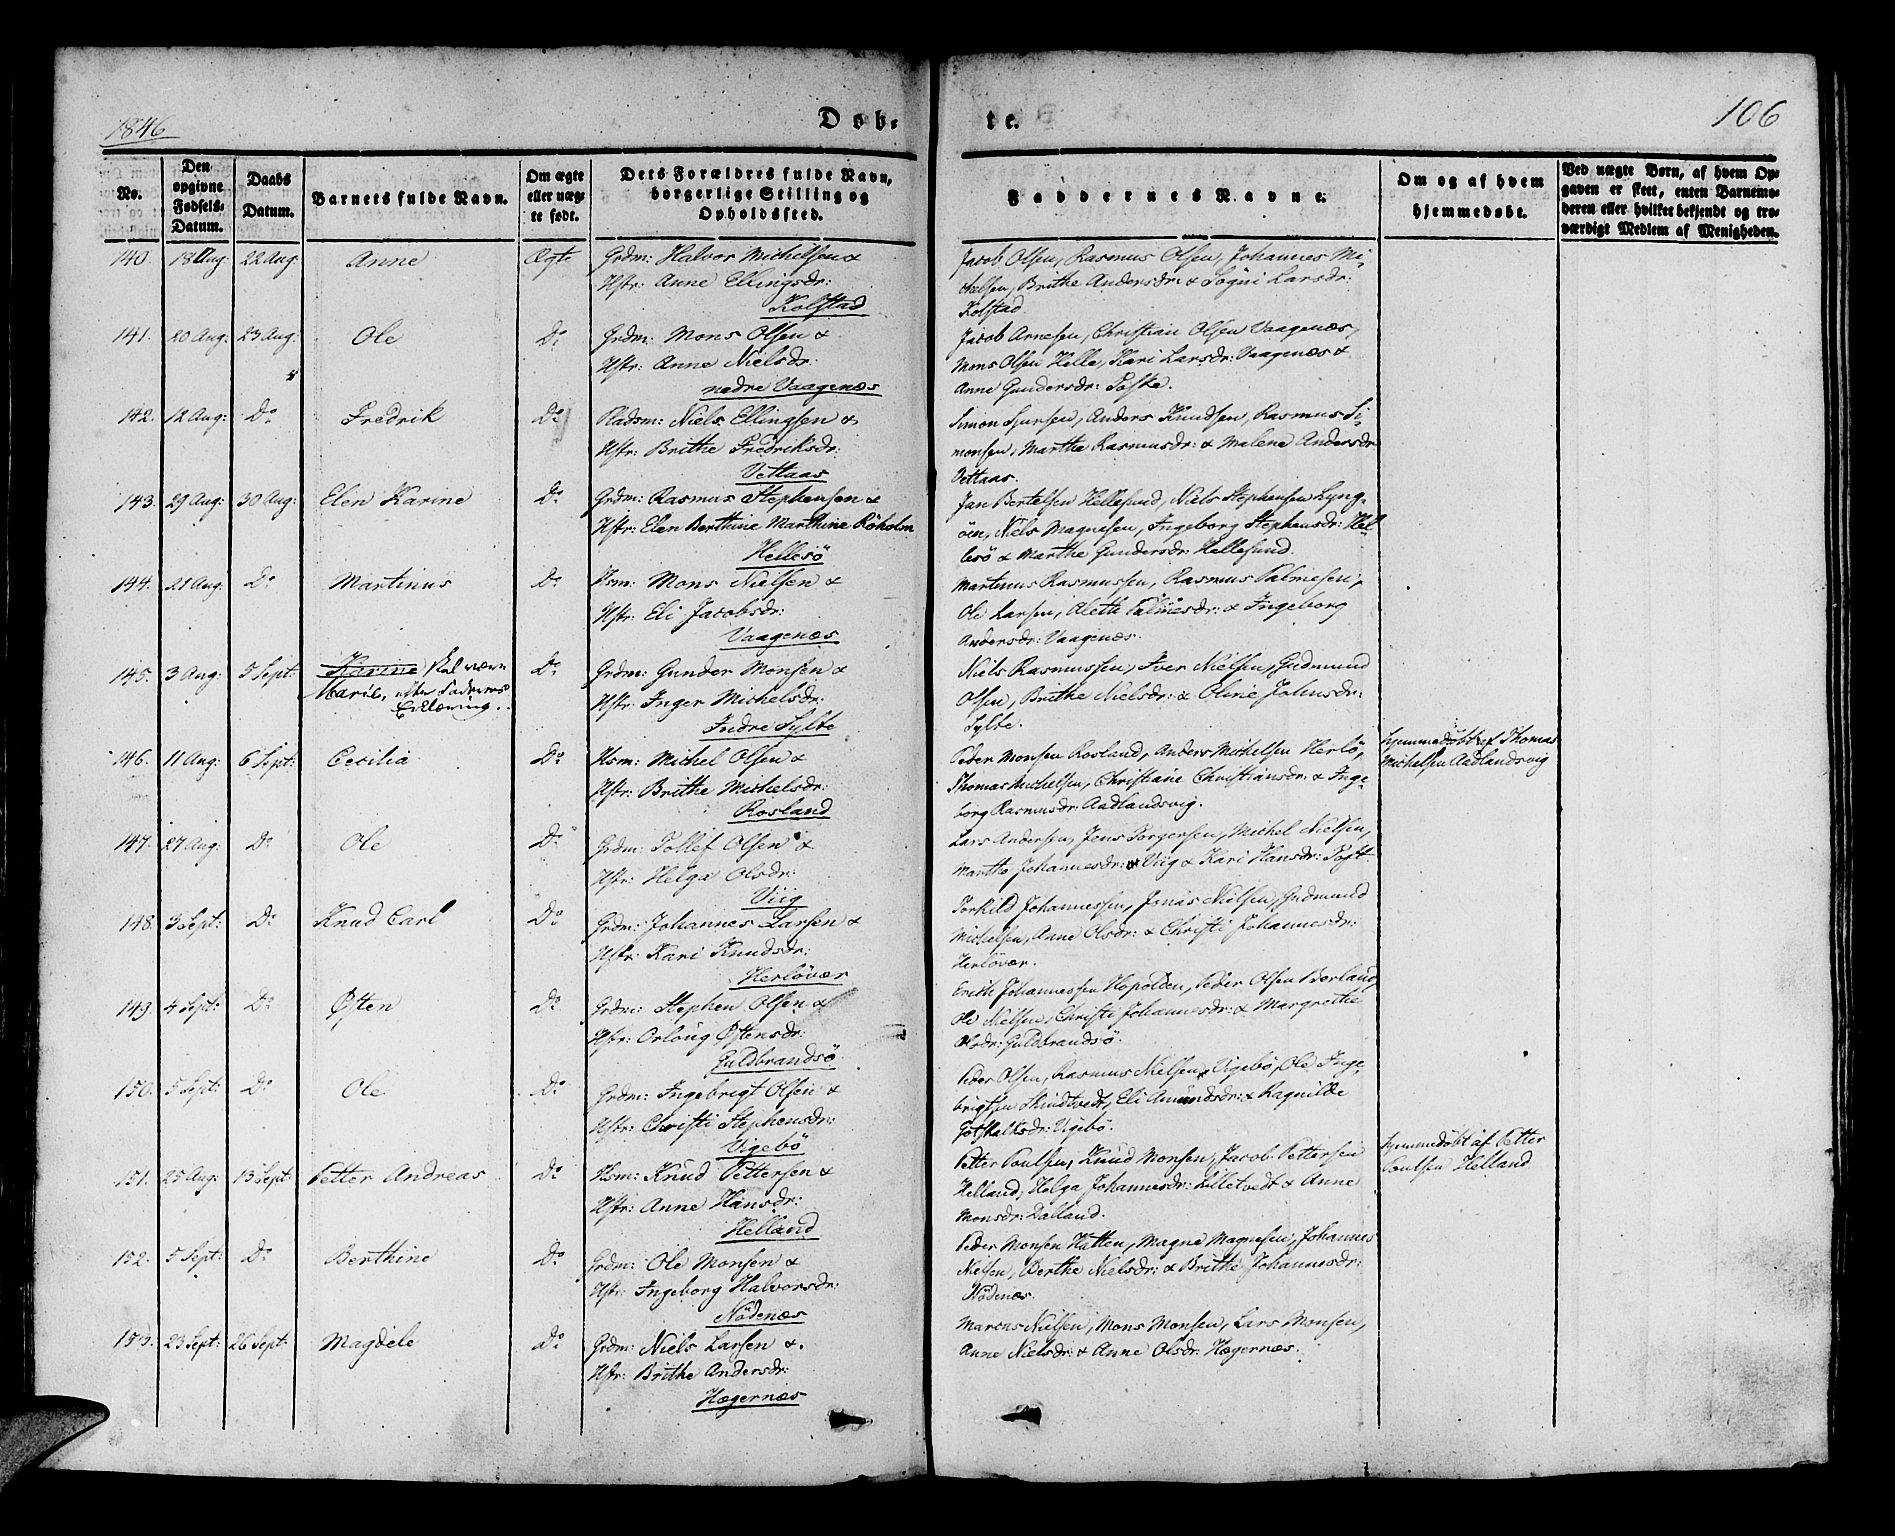 1846
Døb-
te.
106
No.
Den opgivne Fødsels-Datum.
Daabs Datum.
Barnets fulde Navn.
Om ægte eller uægte født.
Dets Forældres fulde Navn, borgerlige Stilling og Opholdssted.
Faddernes Navne.
Om og af hvem hjemmedøbt.
Ved uægte Børn, af hvem Opgaven er skeet, enten Barnemoderen eller hvilket bekjendt og troværdigt Medlem af Menigheden.
140. 18 Aug: 22 Aug: Anne Ægte Grdm: Halvor Michelsen &
Hstr: Anne Ellingsdr:
Kolstad
Jacob Olsen, Rasmus Olsen, Johannes Mi-
chelsen, Brithe Andersdr: & Sogni Larsdr:
Kolstad
141. 20 Aug: 23 Aug: Ole Do Grdm: Mons Olsen &
Hstr: Anne Nielsdr:
nedre Vaagenæs
Jacob Arnesen, Christian Olsen Vaagenæs,
Mons Olsen Helle, Kari Larsdr: Vaagenæs &
Anne Gundersdr: Toske.
142. 12 Aug: Do Fredrik Do Pladsm: Niels Ellingsen &
Hstr: Brithe Fredriksdr:
Vetaas
Simon Sjursen, Anders Knudsen, Rasmus Si-
monsen, Marthe Rasmusdr: & Malene Andersdr
Vettaas.
143. 29 Aug: 30 Aug: Elen Karine Do Grdm: Rasmus Stephensen &
Hstr: Elen Berthine Marthine Röholm
Hellesö
Jan Bertelsen Hellesund, Niels Stephensen Lyng-
öen, Niels Magnesen, Ingeborg Stephensdr: Hel-
lesö & Marthe Gundersdr: Hellesund.
144. 21 Aug: Do Martinus Do Hsm: Mons Nielsen &
Hstr: Eli Jacobsdr:
Vaagenæs
Martinus Rasmussen, Rasmus Palmesen,
Ole Larsen, Aleth Palmesdr: & Ingeborg
Andersdr: Vaagenæs.
145. 3 Aug: 5 Sept: Karine skal være
Marie, efter Faderens
Erklæring.
Do Grdm: Gunder Monsen &
Hstr: Inger Michelsdr:
Indre Sylte
Niels Rasmussen, Iver Nielsen, Gudmund
Olsen, Brithe Nielsdr: & Oline Johnsdr:
Sylte.
146. 11 Aug: 6 Sept: Cecilia Do Hsm: Michel Olsen &
Hstr: Brithe Michelsdr:
Rosland
Peder Monsen Rosland, Anders Michelsen Herlö,
Thomas Michelsen, Christiane Christiansdr: & Inge-
borg Rasmusdr: Aadlandsvig.
hjemmedöbt af Thomas
Michelsen Aadlandsvig
147. 27 Aug: Do Ole Do Grdm: Tollef Olsen &
Hstr: Helga Olsdr:
Viig
Lars Andersen, Jens Torgersen, Michel Nielsen,
Marthe Johannesdr: Viig & Kari Hansdr:
148. 3 Sept: Do Knud Carl Do Grdm: Johannes Larsen &
Hstr: Kari Knudsdr:
Herlövær
Torkild Johannessen, Jonas Nielsen, Gudmund
Michelsen, Anne Olsdr: & Christi Johannesdr:
Herlövær.
149. 4 Sept: Do Østen Do Grdm: Stephen Olsen &
Hstr: Orloug Østensdr:
Guldbrandsö
Erich Johannessen Hopolden, Peder Olsen Borland
Ole Nielsen, Christi Johannesdr: & Margrethe
Olsdr: Guldbrandsö.
150. 5 Sept: Do Ole Do Grdm: Ingebrigt Olsen &
Hstr: Christi Stephensdr:
Vigebö
Peder Olsen, Rasmus Nielsen Vigebö, Ole Inge-
brigtsen Skindtvedt, Eli Amundsdr: & Ragnilde
Gotskalksdr: Vigebö.
151. 25 Aug: 13 Sept Petter Andreas Do Hsm: Knud Pettersen &
Hstr: Anne Hansdr:
Helland
Petter Poulsen, Knud Monsen, Jacob Pettersen
Helland, Helga Johannesdr: Lilletvedt & Anne
Monsdr: Dalland.
hjemmedöbt af Petter
Poulsen Helland
152. 5 Sept: Do Berthine Do Grdm: Ole Monsen &
Hstr: Ingeborg Halvorsdr:
Nödenæs
Peder Monsen Hatten, Magne Magnesen, Johannes
Nielsen, Berthe Nielsdr: & Brithe Johannesdr:
Nödenæs.
153. 23 Sept: 26 Sept: Magdele Do Grdm: Niels Larsen &.
Hstr: Brithe Andersdr:
Hægernæs
Marcus Nielsen, Mons Monsen, Lars Monsen,
Anne Nielsdr: & Anne Olsdr: Hægernæs.